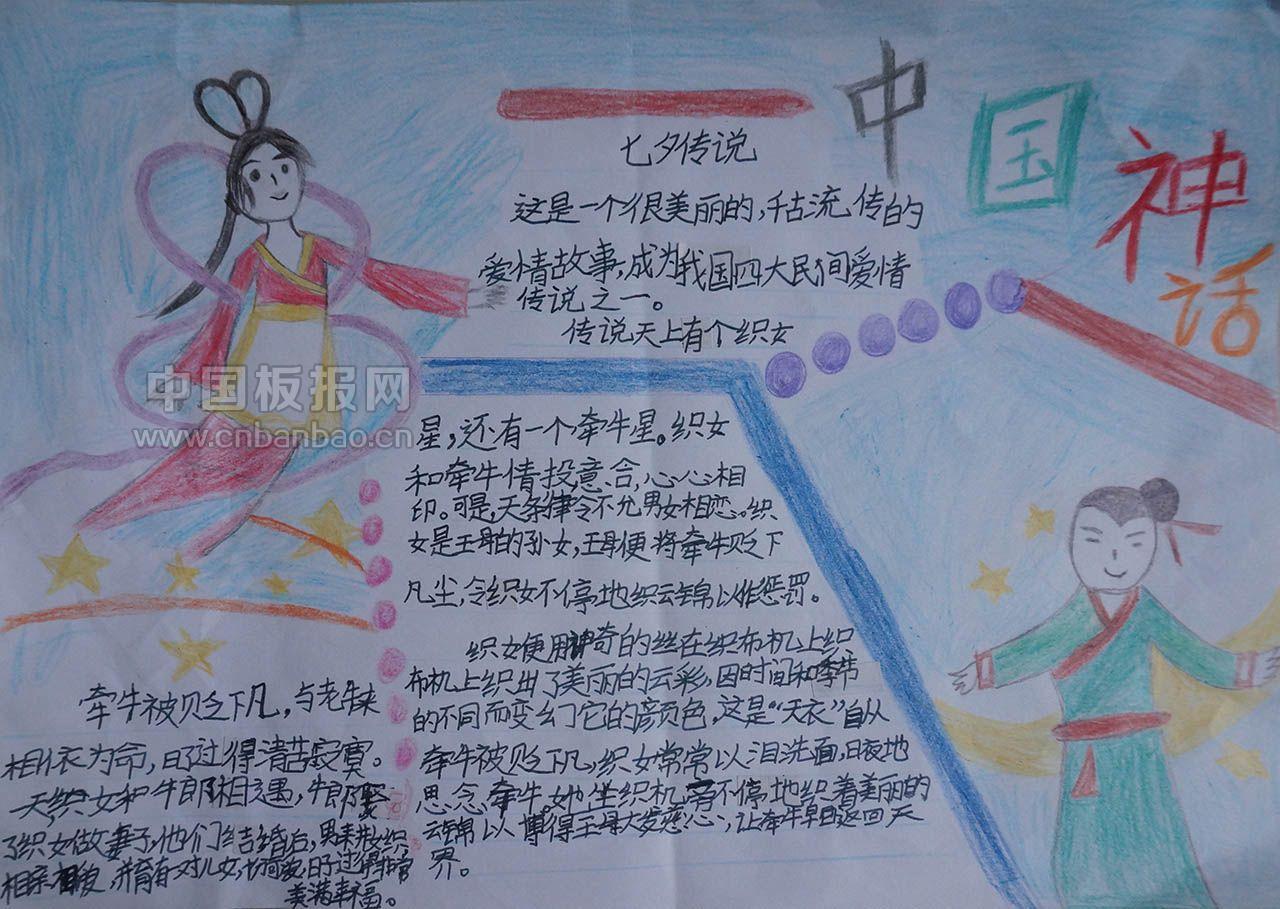 中国神话
七夕传说
这是一个很美丽的，千古流传的
爱情故事，成为我国四大民间爱情
传说之一。
传说天上有个织女
星，还有一个牵牛星。织女
和牵牛情投意合，心心相
印。可是，天条律令不允男女相恋。织
女是王母的孙女，王母便将牵牛贬下
凡尘，令织女不停地织云锦以作惩罚。
织女便用神奇的丝在织布机上织
布机上织出了美丽的云彩，因时间和季节
的不同而变幻它的颜色，这是“天衣”自从
牵牛被贬下凡，织女常常以泪洗面，日夜地
思念牵牛她坐织机旁不停地织着美丽的
云锦以博得王母大发慈心，让牵牛早日返回天
界。
牵牛被贬下凡，与老牛
相依为命，日子过得清苦寂寞。
天织女和牛郎相遇，牛郎娶
了织女做妻子，他们结婚后，男耕女织
相亲相爱，并育有一对儿女，日子过得非常
美满幸福。
中国板报网
www.cnbanbao.cn